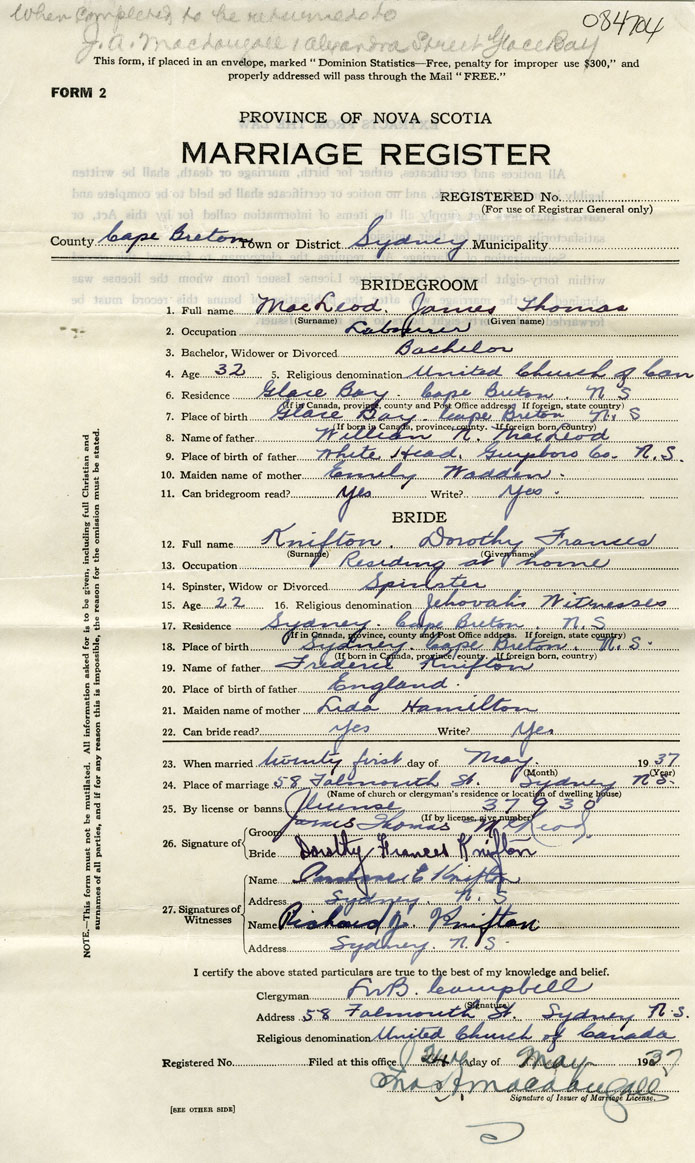 When completed to be returned to
084704
J. A. MacDougall 1 Alexandra Street Glace Bay
This form, if placed in an envelope, marked "Dominion Statistics—Free, penalty for improper use $300," and
properly addressed will pass through the Mail "FREE."
FORM 2
PROVINCE OF NOVA SCOTIA
MARRIAGE REGISTER
REGISTERED No.
(For use of Registrar General only)
County Cape Breton Town or District Sydney Municipality
BRIDEGROOM
1. Full name MacLeod. James Thomas
(Surname) (Given name)
2. Occupation Labourer
3. Bachelor, Widower or Divorced Bachelor
4. Age 32 5. Religious denomination United Church of Can
6. Residence Glace Bay. Cape Breton. N S
(If in Canada, province, county and Post Office address. If foreign, state country)
7. Place of birth Glace Bay. Cape Breton N. S
(If born in Canada, province, county. If foreign born, country)
8. Name of father William N. MacLeod
9. Place of birth of father White Head, Guysboro Co. N. S.
10. Maiden name of mother Emily Wadden.
11. Can bridegroom read? Yes Write? Yes.
BRIDE
12. Full name Knifton. Dorothy Frances
(Surname) (Given name)
13. Occupation Residing at home
14. Spinster, Widow or Divorced Spinster
15. Age 22 16. Religious denomination Jehovah's Witnesses
17. Residence Sydney. Cape Breton. N. S
(If in Canada, province, county and Post Office address. If foreign, state country)
18. Place of birth Sydney. Cape Breton. N. S.
(If born in Canada, province, county. If foreign born, country)
19. Name of father Frederic Knifton
20. Place of birth of father England.
21. Maiden name of mother Lida Hamilton
22. Can bride read? Yes Write? Yes.
23. When married twenty first day of May. 1937
(Month) (Year)
24. Place of marriage 58 Falmouth St. Sydney N.S.
(Name of church or clergyman's residence or location of dwelling house)
25. By license or banns License 37930
(If by license, give number)
26. Signature of Groom James Thomas McLeod
Bride Dorothy Frances Knifton
27. Signatures of Witnesses
Name E Knifton
Address Sydney. N. S
Name Richard J. Knifton
Address Sydney. N. S.
I certify the above stated particulars are true to the best of my knowledge and belief.
Clergyman B. Campbell
(Signature)
Address 58 Falmouth St. Sydney N.S.
Religious denomination United Church of Canada
Registered No. Filed at this office 24 day of May 1937
MacDougall
Signature of Issuer of Marriage License.
[SEE OTHER SIDE]
NOTE.—This form must not be mutilated. All information asked for is to be given, including full Christian and
surnames of all parties, and if for any reason this is impossible, the reason for the omission must be stated.